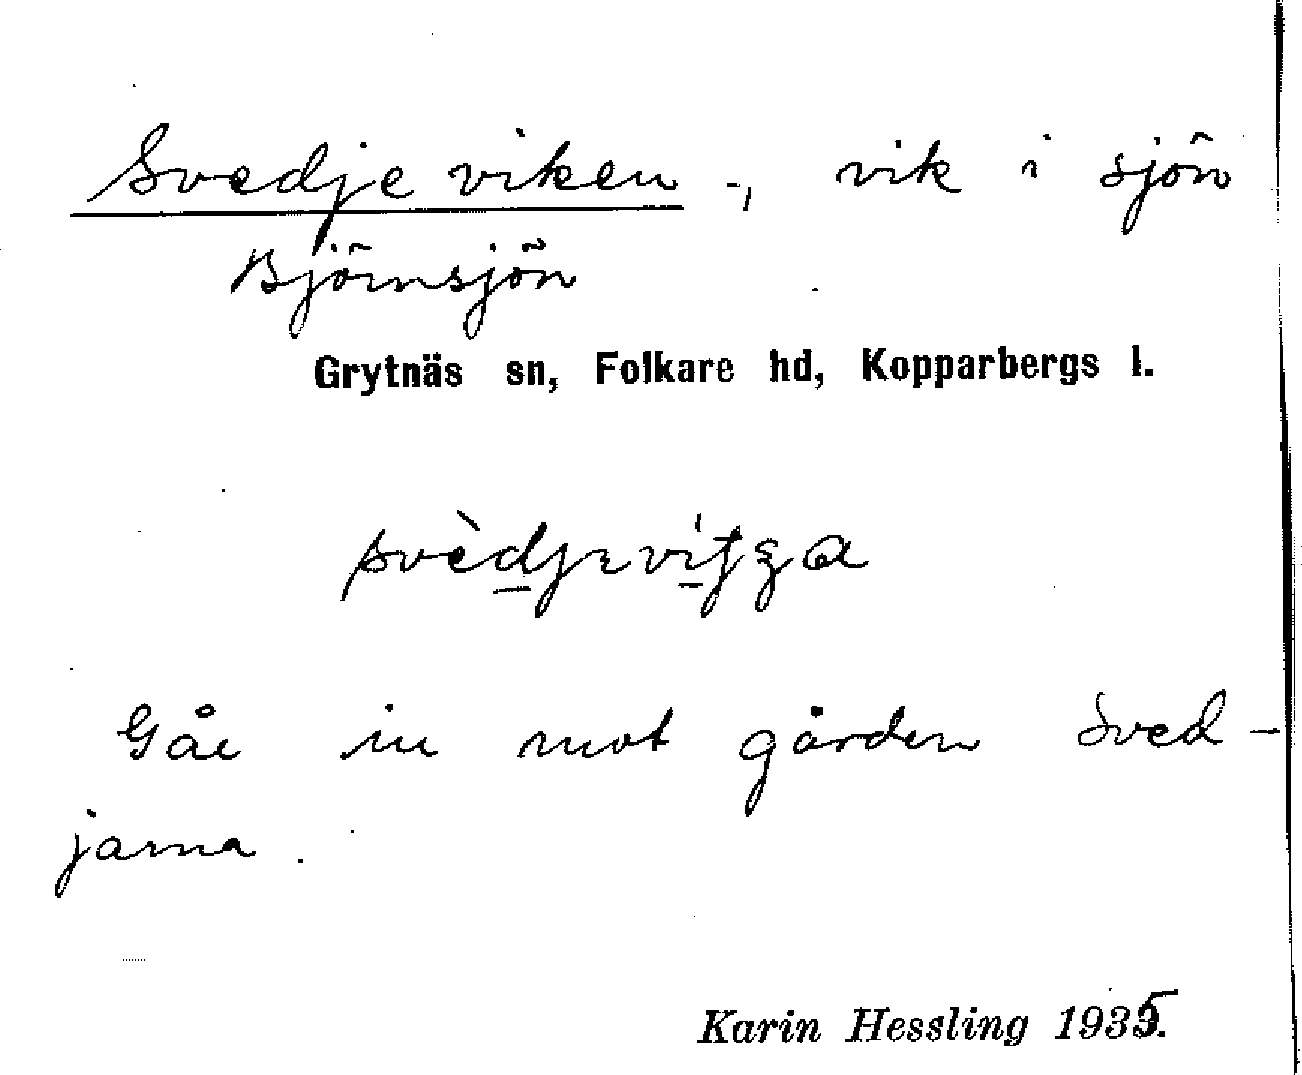 Svedjeviken -, vik i sjön
Björnsjön
Grytnäs sn, Folkare hd, Kopparbergs l.
Går in mot gården Sved-
jarna.
Karin Hessling 1935.